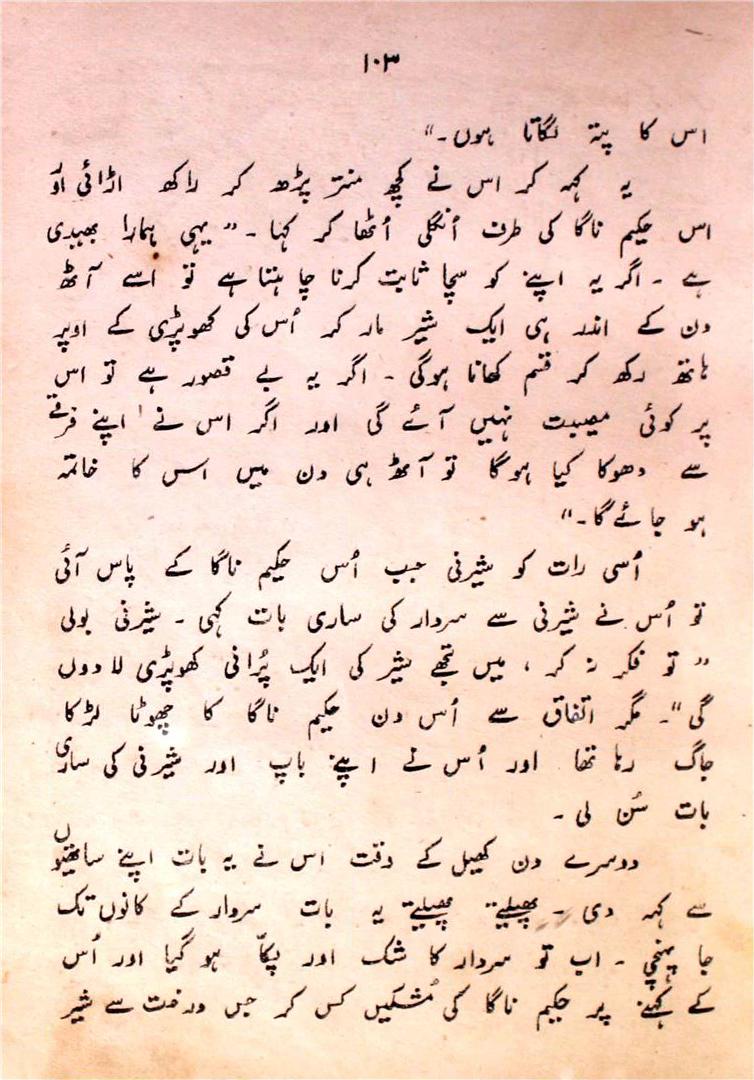 ۱۰۳
اس کا پتہ لگاتا ہوں۔"
یہ کہہ کر اس نے کچھ منتر پڑھ کر راکھ اڑائی اور
اس حکیم ناگا کی طرف اُنگلی اُٹھا کر کہا۔ "یہی ہمارا بھیدی
ہے ۔ اگر یہ اپنے کو سچا ثابت کرنا چاہتا ہے تو اسے آٹھ
دن کے اندر ہی ایک شیر مار کر اُس کی کھوپڑی کے اوپر
ہاتھ رکھ کر قسم کھانا ہوگی ۔ اگر یہ بے قصور ہے تو اس
پر کوئی مصیبت نہیں آئے گی اور اگر اس نے اپنے فرقے
سے دھوکا کیا ہوگا تو آٹھ ہی دن میں اس کا خاتمہ
ہو جائے گا۔"
اُسی رات کو شیرنی جب اُس حکیم ناگا کے پاس آئی
تو اُس نے شیرنی سے سردار کی ساری بات کہی ۔ شیرنی بولی
"تو فکر نہ کر ، میں تجھے شیر کی ایک پُرانی کھوپڑی لا دوں
گی"۔ مگر اتفاق سے اُس دن حکیم ناگا کا چھوٹا لڑکا
جاگ رہا تھا اور اُس نے اپنے باپ اور شیرنی کی ساری
بات سُن لی ۔
دوسرے دن کھیل کے وقت اس نے یہ بات اپنے ساتھیوں
سے کہہ دی ۔ پھیلتے پھیلتے یہ بات سردار کے کانوں تک
جا پہنچی ۔ اب تو سردار کا شک اور پکّا ہو گیا اور اُس
کے کہنے پر حکیم ناگا کی مُشکیں کس کر جس درخت سے شیر